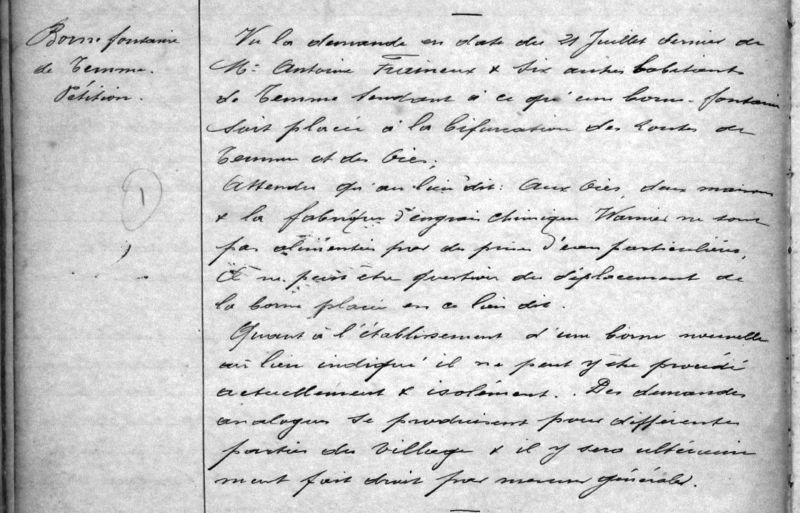 Borne fontaine
de Temme.
Pétition.
1
Vu la demande en date du 21 Juillet dernier de
Mr Antoine & six autres habitants
de Temme tendant à ce qu'une borne-fontaine
soit placée à la bifurcation des routes de
Temme et des Oies;
Attendu qu'au lieu dit: Aux Oies, deux maisons
& la fabrique d'engrais chimique Warnier ne sont
pas alimentées par des prises d'eau particulières,
Il ne peut être question du déplacement de
la borne placée en ce lieu dit.
Quant à l'établissement d'une borne nouvelle
au lieu indiqué il ne peut y être procédé
actuellement & isolément. Des demandes
analogues se produisent pour différentes
parties du village & il y sera ultérieure
ment fait droit par mesure générale.